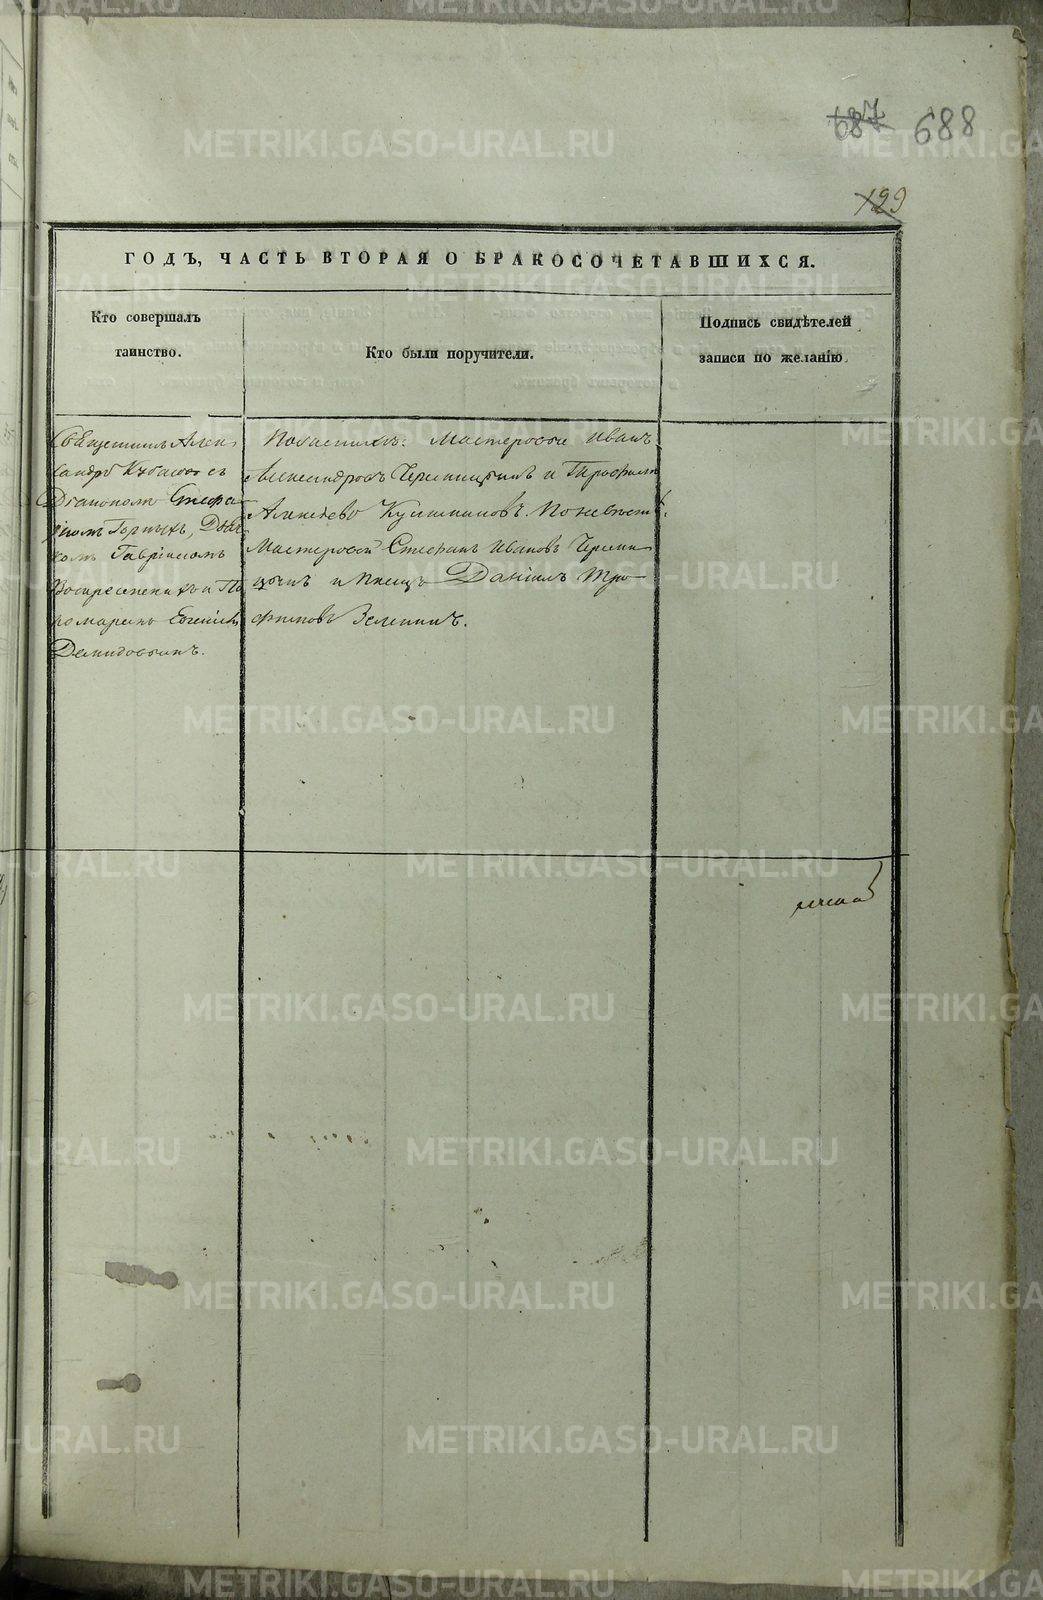 687 688
129
ГОДЪ, ЧАСТЬ ВТОРАЯ О БРАКОСОЧЕТАВШИХСЯ.
Кто совершалъ
таинство.
Кто были поручители.
Подпись свидѣтелей
записи по желанію.
Священникъ Алек-
сандръ Кубасовъ съ
Діакономъ Стефа-
номъ Горныхъ, Дьяч-
комъ Гавріиломъ
и По
номаремъ Евгеніемъ
Демидовымъ.
По женихѣ: Мастеровые Иванъ
Александровъ и Трофимъ
Алексѣевъ. По невѣстѣ:
Мастеровой Стефанъ Ивановъ
и Писецъ Даніилъ Тро-
фимовъ Зеленинъ.
METRIKI.GASO-URAL.RU